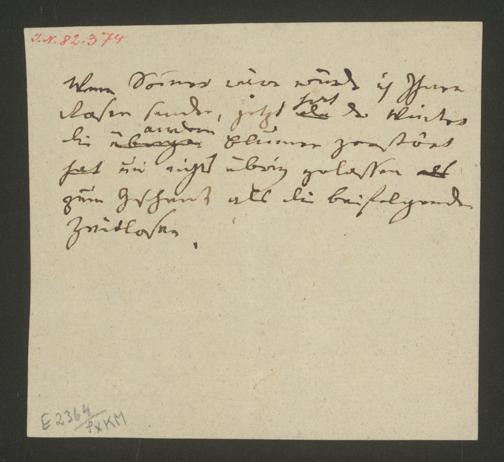 I.N. 82.374
Wenn Sommer wäre würde ich Ihnen
Rosen senden, jetzt da der Winter
hat
die übrigen Blumen zerstört
andern
hat und nichts übrig gelassen als
zum Geschenk als die beifolgenden
Zeitlosen.
E 2364